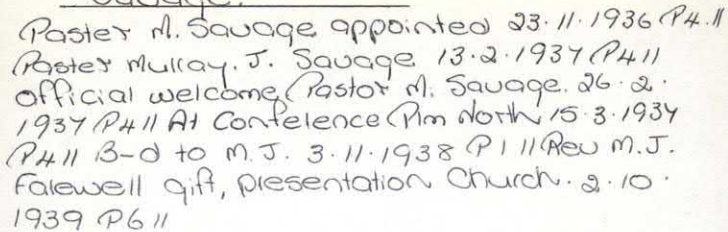 Savage.
Paster M. Savage appointed 23.11.1936 P4.//
Paster Murray. J. Savage 13.2.1937 P4//
official welcome Pastor M. Savage. 26.2.
1937 P4// At Conference Pm North 15.3.1937
P4// B-d to M.J. 3.11.1938 P1// Rev M.J.
Farewell gift, presentation Church. 2.10.
1939 P6//